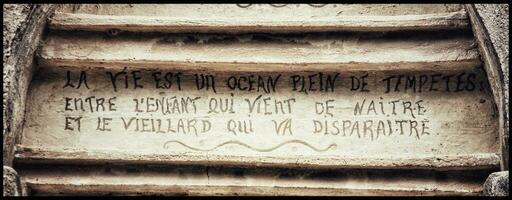 LA VIE EST UN OCEAN PLEIN DE TEMPETES:
ENTRE L'ENFANT QUI VIENT DE NAITRE
ET LE VIEILLARD QUI VA DISPARAITRE